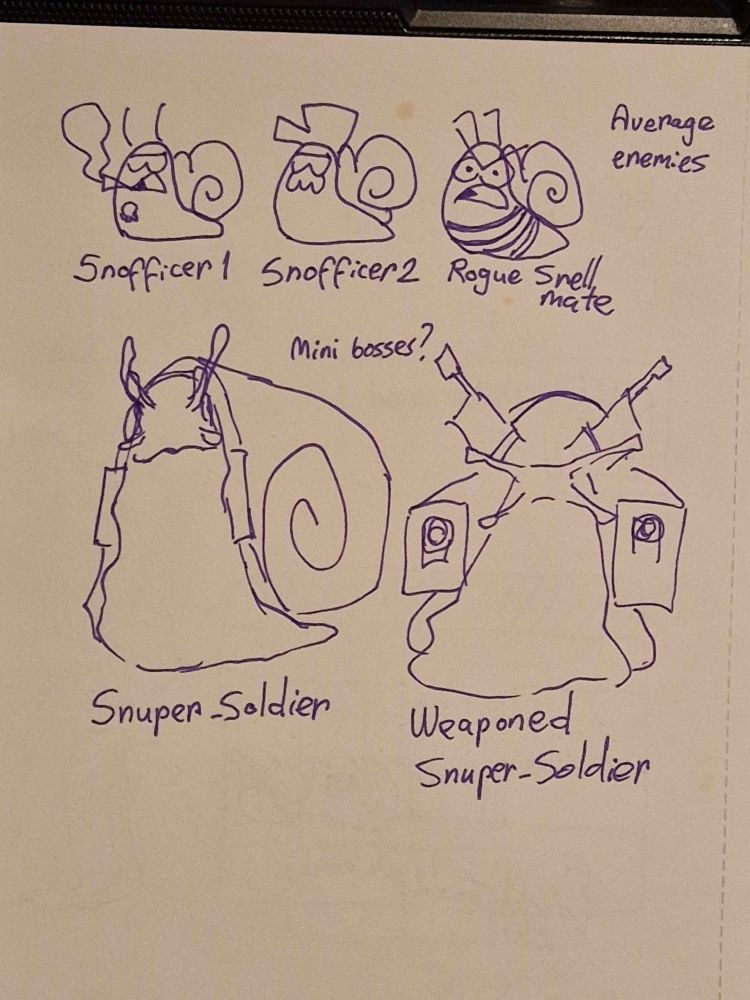 Average
enemies
Snofficer 1
Snofficer 2
Rogue Snell
mate
Mini bosses?
Snuper-Soldier
Weaponed
Snuper-Soldier